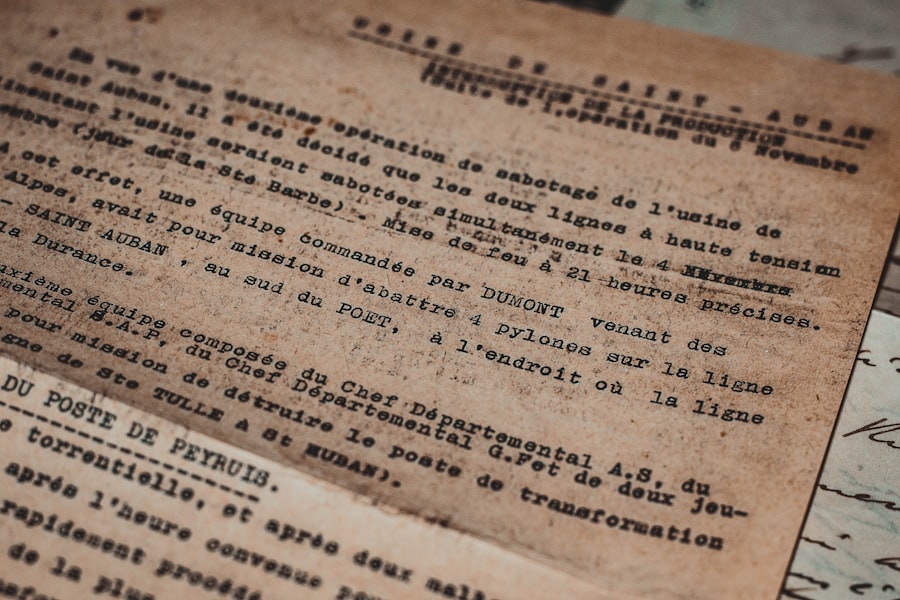 USINE DE SAINT - AUBAN
INTERRUPTION DE LA PRODUCTION
Suite de l'opération du 6 Novembre
En vue d'une deuxième opération de sabotage de l'usine de
Saint Auban, il a été décidé que les deux lignes à haute tension
limentant l'usine seraient sabotées simultanément le 4 NNxembre
embre (jour de la Sté Barbe). Mise de feu à 21 heures précises.
A cet effet, une équipe commandée par DUMONT venant des
Alpes, avait pour mission d'abattre 4 pylones sur la ligne
- SAINT AUBAN , au sud du POET, à l'endroit où la ligne
la Durance.
uxième équipe composée du Chef Départemental A.S, du
mental S.A.P, du Chef Départemental G.Fet de deux jeu-
pour mission de détruire le poste de transformation
gne de Ste TULLE à St AUBAN).
DU POSTE DE PEYRUIS.
e torrentielle, et après deux
après l'heure convenue
rapidement procédé
de la plus